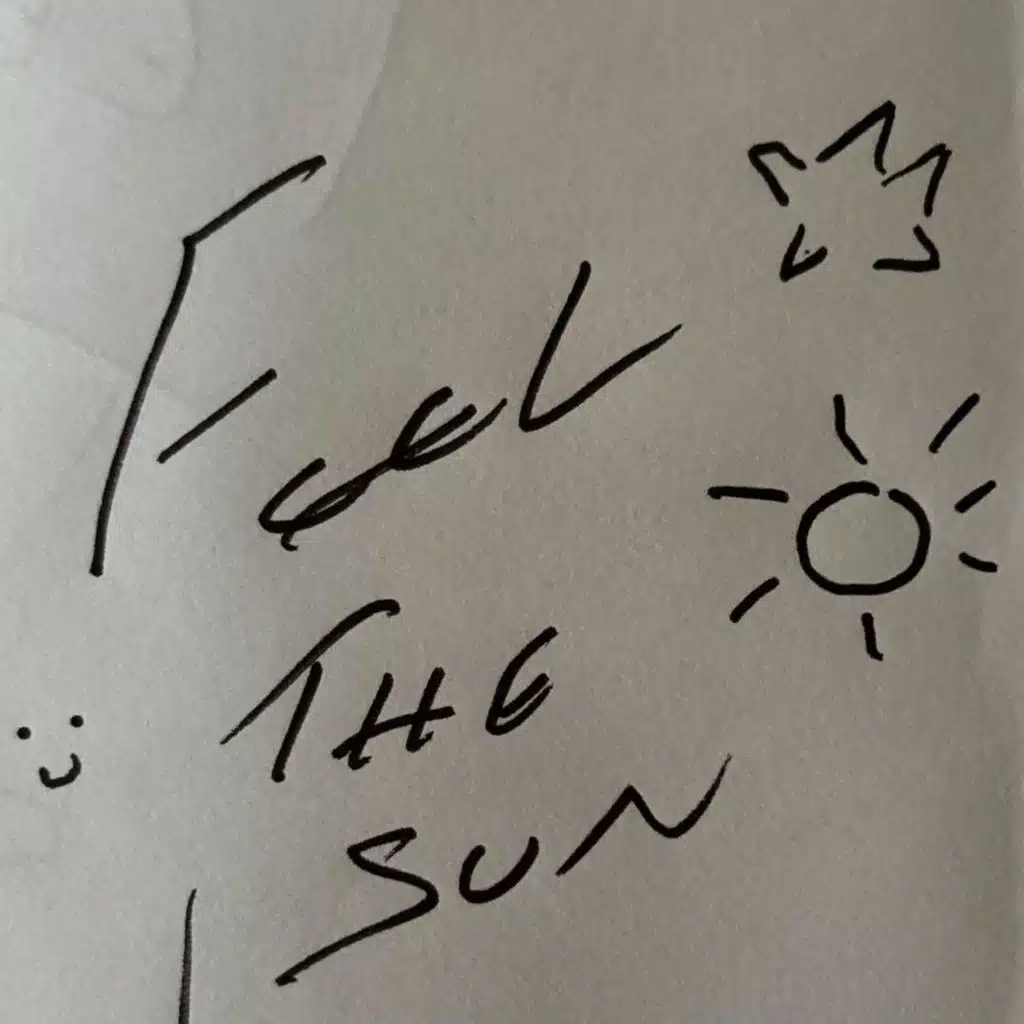 Feel
THE
SUN